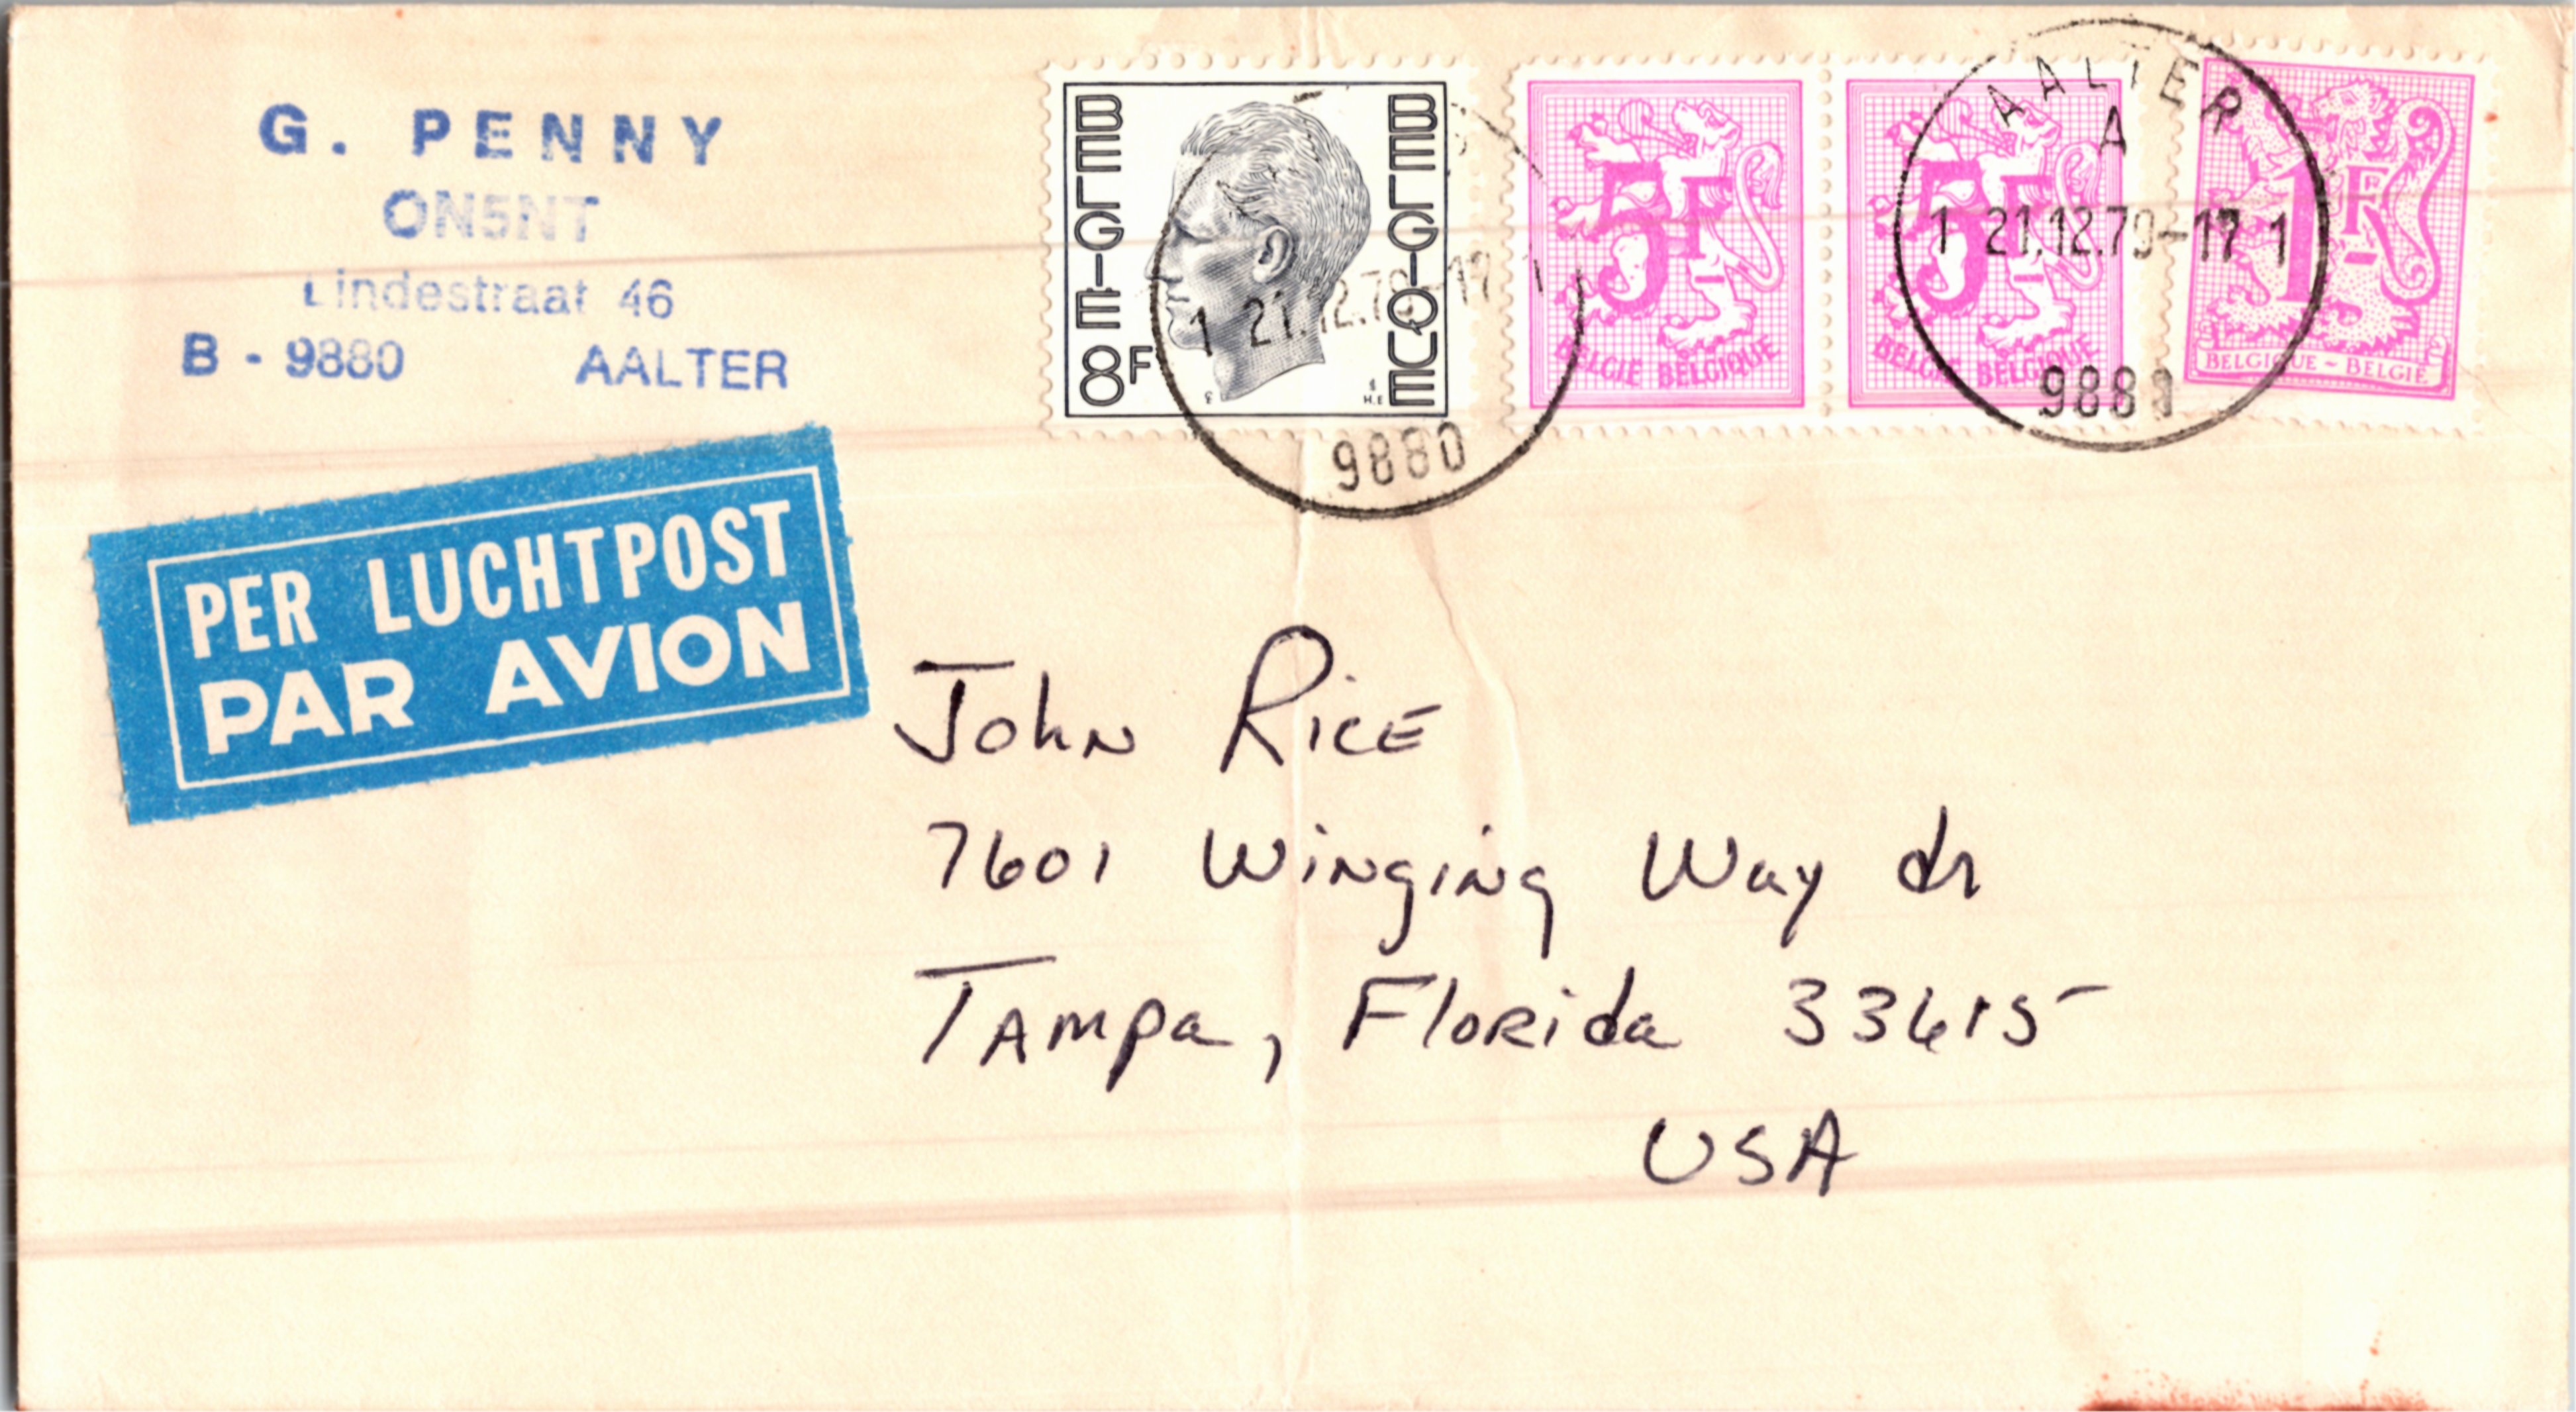 G. PENNY
ON5NT
Lindestraat 46
B - 9880 AALTER
PER LUCHTPOST
PAR AVION
BELGIE
8F
BELGIQUE
1 21.12.79-17 1
9880
5F
BELGIË BELGIQUE
5F
BELGIË BELGIQUE
AALTER
A
1 21.12.79-17 1
9880
1F
BELGIQUE - BELGIË
John Rice
7601 Winging Way dr
Tampa, Florida 33615
USA